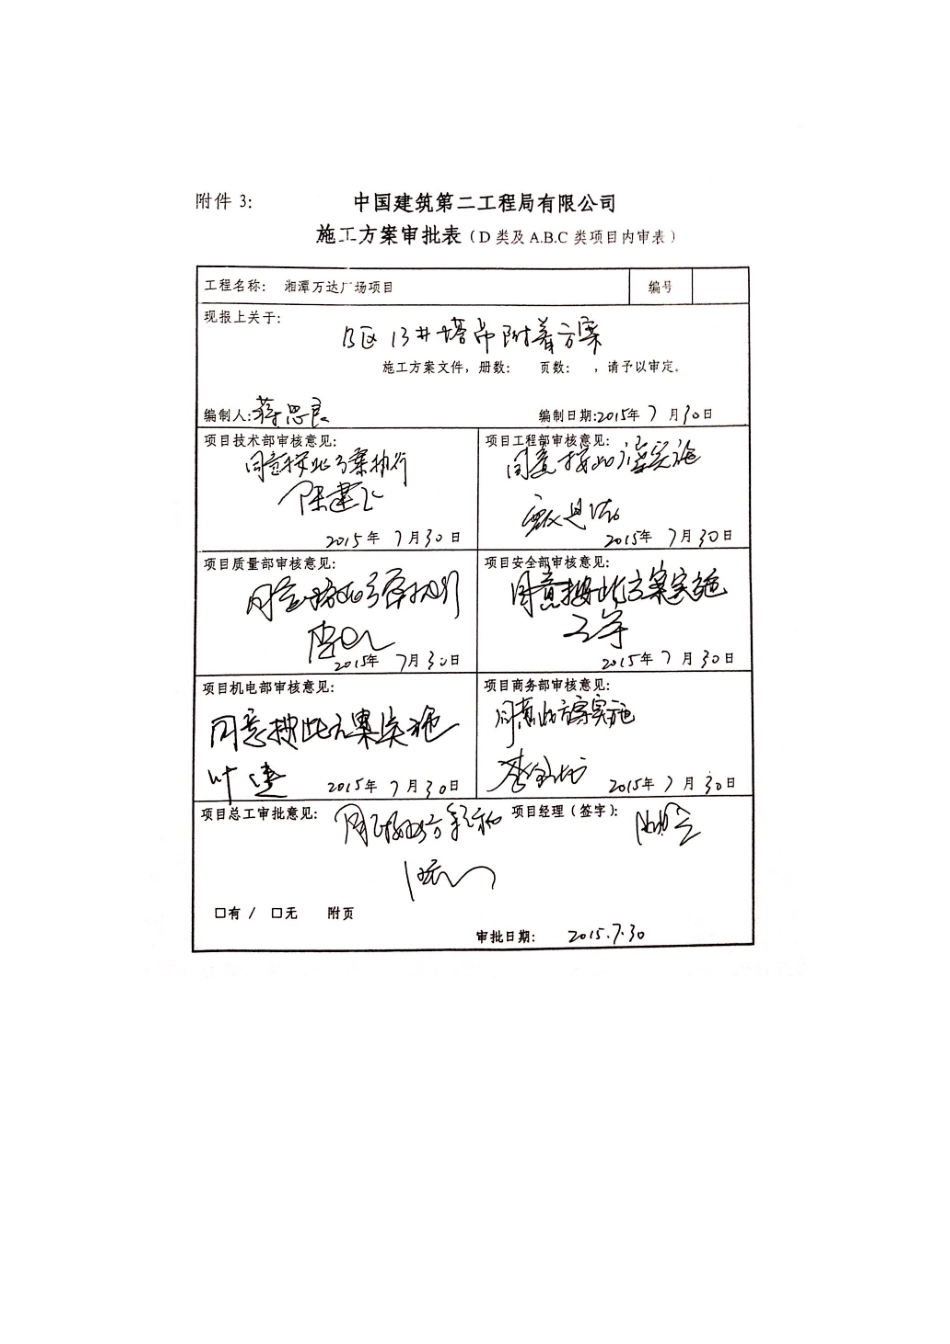 附件 3:
中国建筑第二工程局有限公司
施工方案审批表(D 类及 A.B.C 类项目内审表)
工程名称: 湘潭万达广场项目 编号
现报上关于:
B区 13#塔吊附着方案
施工方案文件，册数: 页数: ，请予以审定。
编制人:蒋忠良 编制日期:2015年 7 月30日
项目技术部审核意见:
同意按此方案执行
陈建飞
2015年 7月30日
项目工程部审核意见:
同意按此方案实施
2015年 7月30日
项目质量部审核意见:
同意按此方案执行
2015年 7月30日
项目安全部审核意见:
同意按此方案实施
2015年 7月30日
项目机电部审核意见:
同意按此方案实施
叶建
2015年 7月30日
项目商务部审核意见:
同意此方案实施
2015年 7月30日
项目总工审批意见:
项目经理(签字):
口有 / 口无 附页
审批日期: 2015.7.30